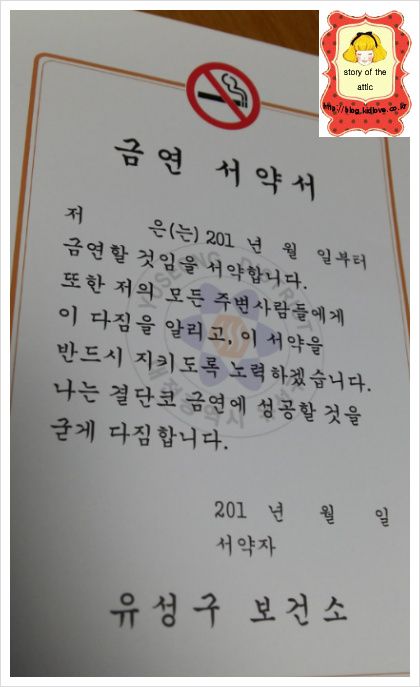 story of the
attic
http://blog.kidlove.co.kr
금연 서약서
저 은(는) 201 년 월 일부터
금연할 것임을 서약합니다.
또한 저의 모든 주변사람들에게
이 다짐을 알리고, 이 서약을
반드시 지키도록 노력하겠습니다.
나는 결단코 금연에 성공할 것을
굳게 다짐합니다.
YUSEONG DISTRICT
201 년 월 일
서약자
유성구 보건소